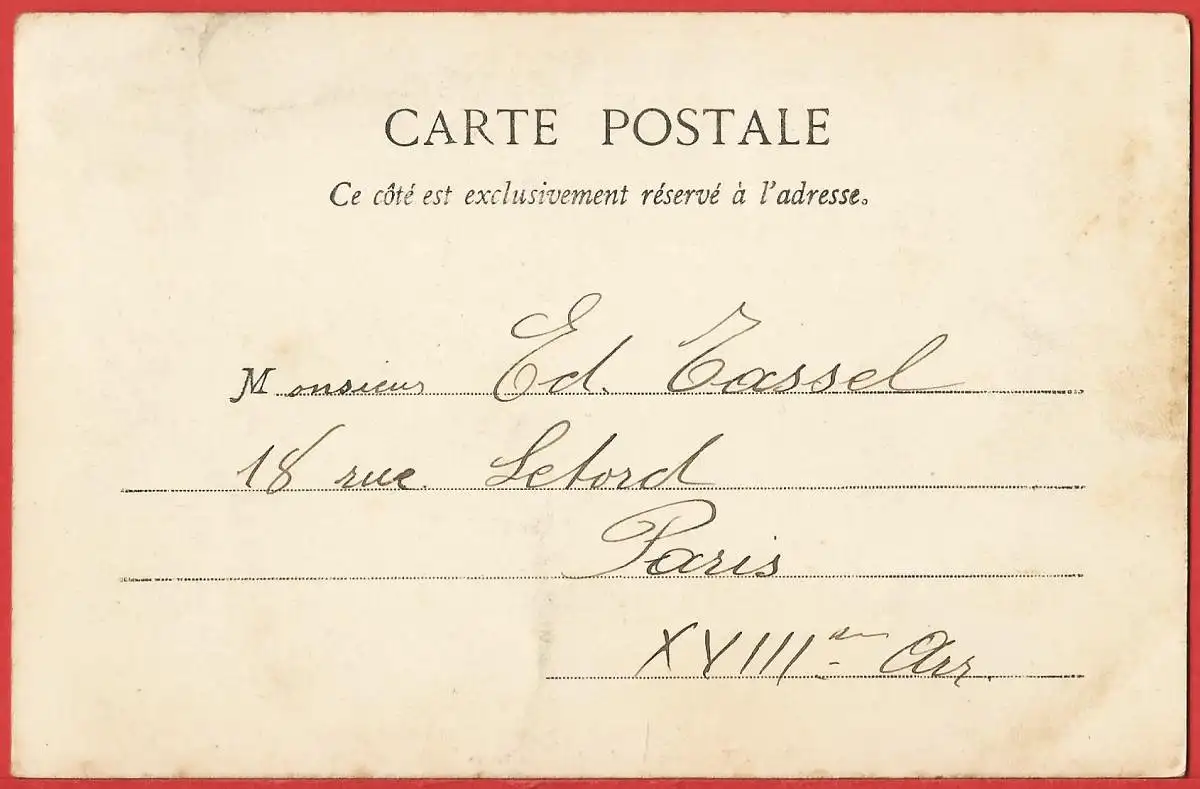 CARTE POSTALE
Ce côté est exclusivement réservé à l'adresse.
Monsieur Ed. Tassel
18 rue Letord
Paris
XVIIIme Arr.